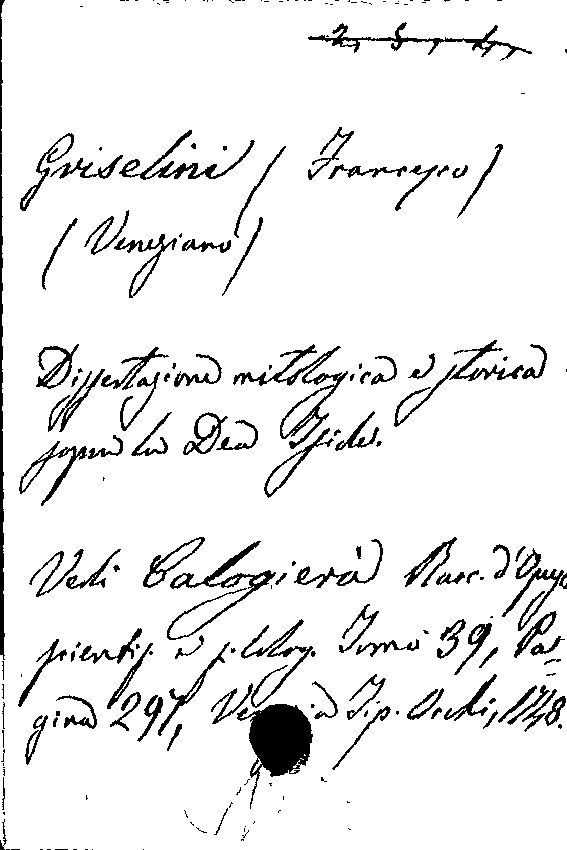 2, 5, 4,
Griselini (Francesco)
(Veneziano)
Dissertazione mitologica e storica
sopra la Dea Iside.
Vedi Calogierà Racc. d'Opus
scientif. e filolog. Tomo 39, Pa=
gina 297, Venezia Tip. Occhi, 1748.